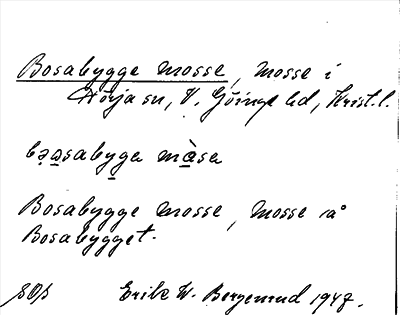 Bosabygge mosse, mosse i
Nörja sn, V. Göinge hd, Krist. l.
bosabyga måsa
Bosabygge mosse, mosse på
Bosabygget.
Erik W. Bergenrud 1947.